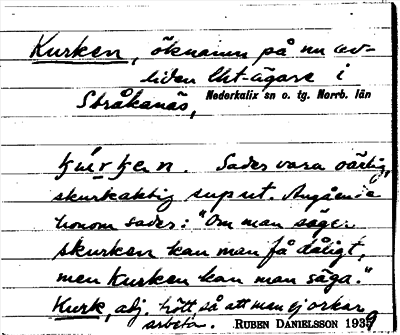 Kurken, öknamn på nu av-
liden lht-ägare i
Stråkanäs, Nederkalix sn o. tg. Norrb. län
Sades vara oärlig,
skurkaktig suput. Angående
honom sades: "Om man säger
skurken kan man få dåligt,
men Kurken kan man säga."
Kurk, adj. trött så att man ej orkar
arbeta. RUBEN DANIELSSON 1939